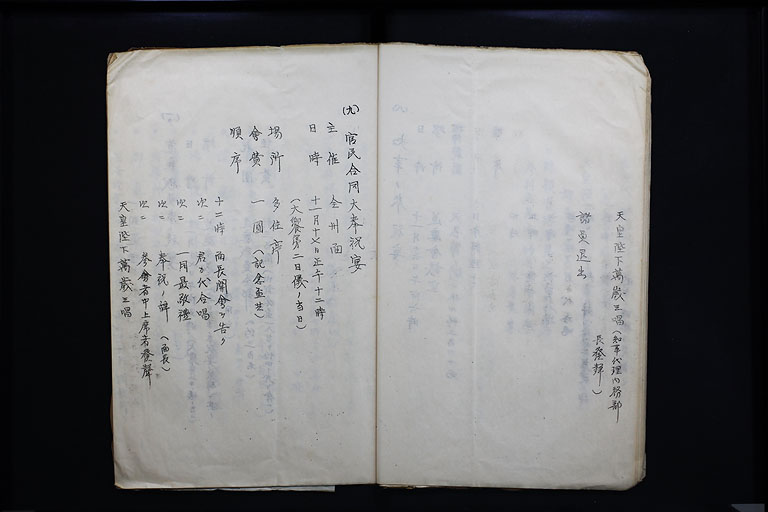 天皇陛下萬歲三唱（知事代理内務部
長發聲）
諸員退出
（九）官民合同大奉祝宴
主催　全州面
日時　十一月十七日正午十二時
（大饗第二日儀ノ当日）
場所
會費　一圓（記念盃共）
順序
十二時　面長開會ヲ告ク
次ニ　君ガ代合唱
次ニ　一同最敬禮
次ニ　奉祝ノ辞（面長）
次ニ　參會者中上席者發聲
天皇陛下萬歲三唱